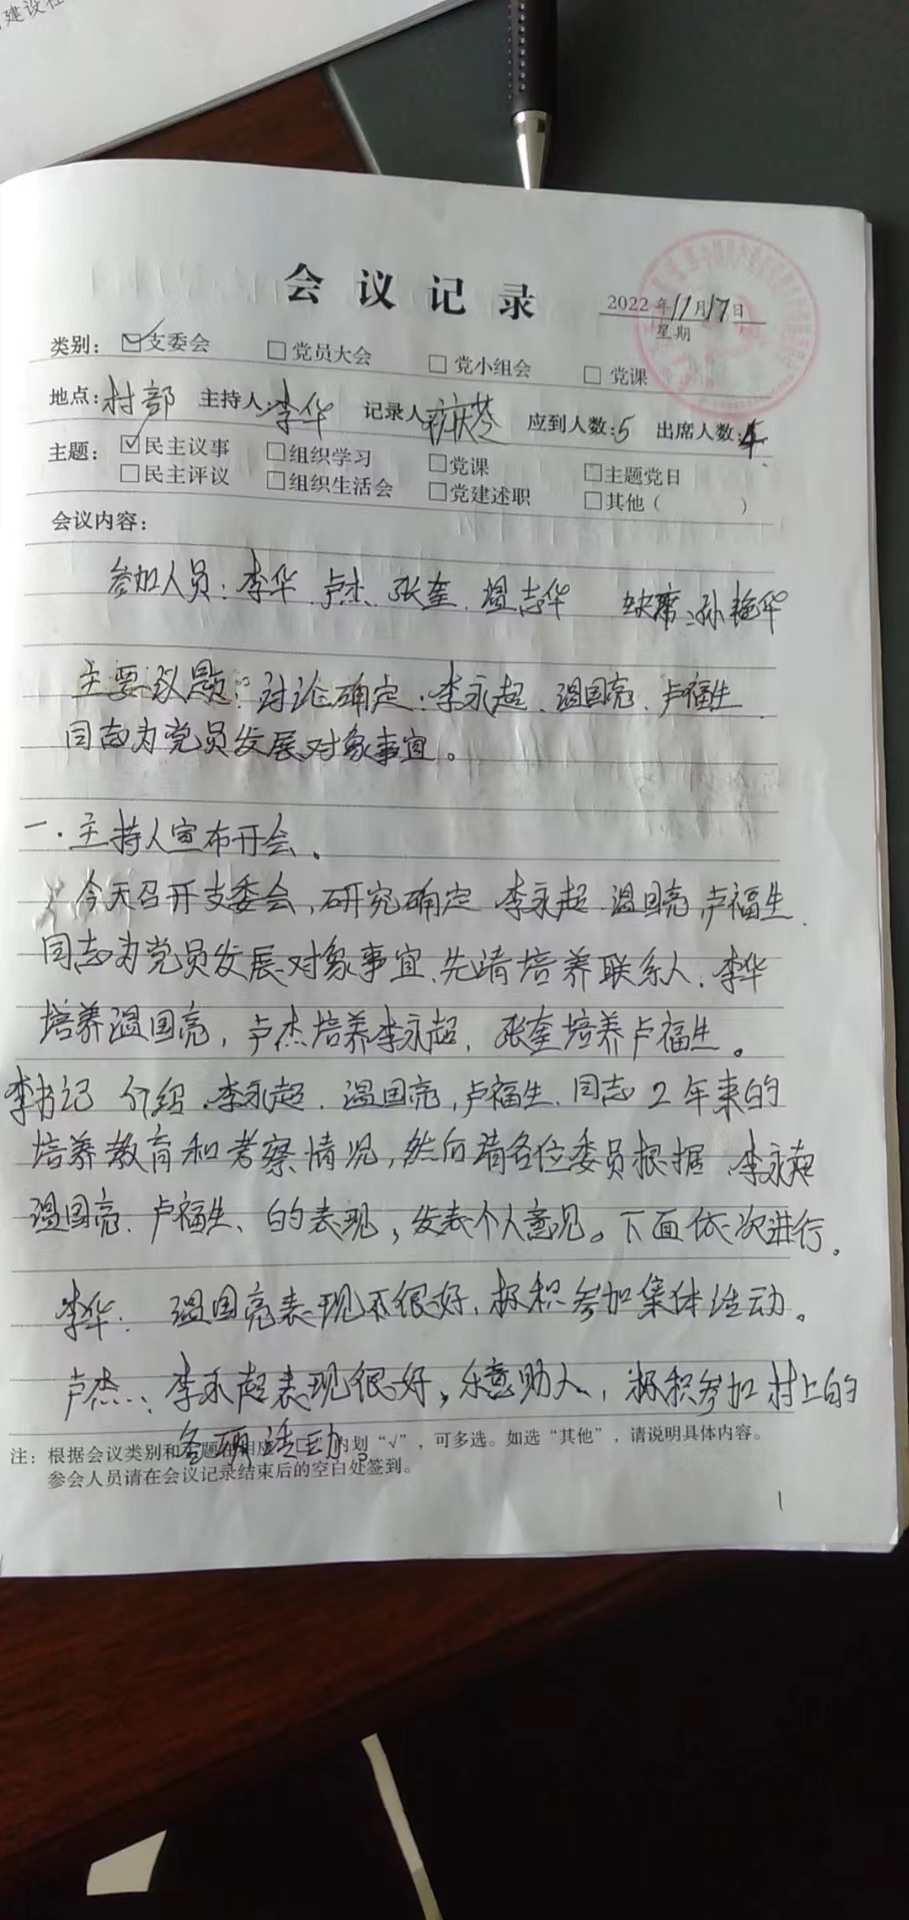 建设社
会议记录
2022年11月17日
星期
类别：☑支委会 □党员大会 □党小组会 □党课
地点：村部 主持人：李华 记录人 应到人数：5 出席人数：4
主题：☑民主议事 □组织学习 □党课 □主题党日
□民主评议 □组织生活会 □党建述职 □其他（ ）
会议内容：
参加人员：李华、卢杰、张奎、温志华 缺席：孙艳华
主要议题：讨论确定：李永超、温国亮、卢福生
同志为党员发展对象事宜。
一．主持人宣布开会。
今天召开支委会，研究确定 李永超 温国亮，卢福生
同志为党员发展对象事宜、先请培养联系人、李华
培养温国亮，卢杰培养李永超，张奎培养卢福生。
李书记 介绍、李永超、温国亮，卢福生、同志2年来的
培养教育和考察情况，然后请各位委员根据、李永超
温国亮、卢福生、的表现，发表个人意见。下面依次进行。
李华：温国亮表现不很好，积积参加集体活动。
卢杰：李永超表现很好，乐意助人，积积参加村上的
各项活动。
注：根据会议类别和 题 相应 划“√”，可多选。如选“其他”，请说明具体内容。
参会人员请在会议记录结束后的空白处签到。
1